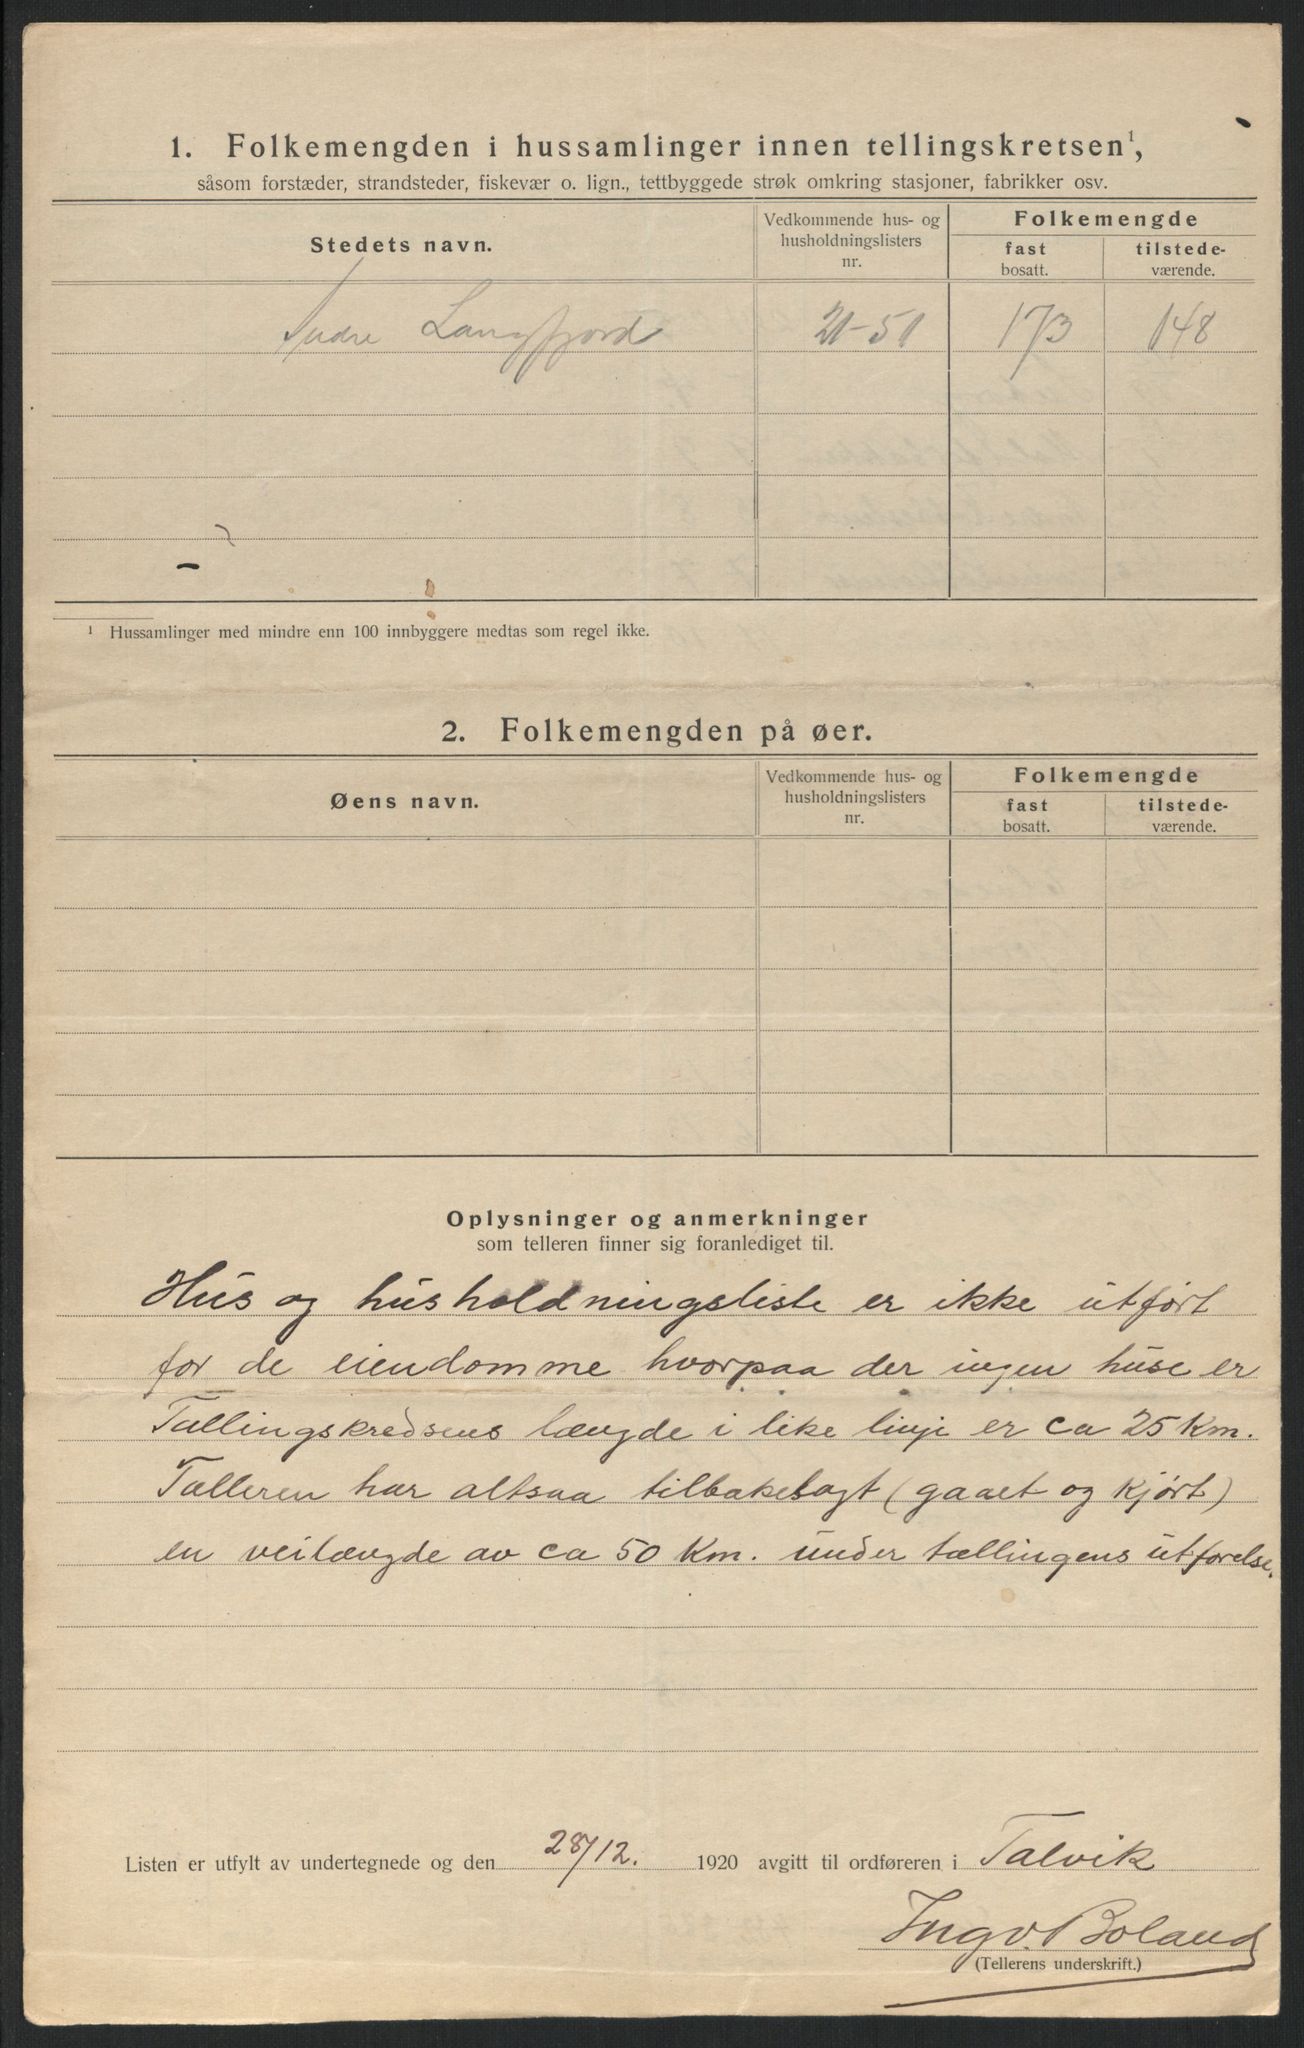 1. Folkemengden i hussamlinger innen tellingskretsen¹,
såsom forstæder, strandsteder, fiskevær o. lign., tettbyggede strøk omkring stasjoner, fabrikker osv.
Stedets navn.
Vedkommende hus- og husholdningslisters nr.
Folkemengde
fast bosatt.
tilstede-værende.
Indre Langfjord 21-51 173 148
¹ Hussamlinger med mindre enn 100 innbyggere medtas som regel ikke.
2. Folkemengden på øer.
Øens navn.
Vedkommende hus- og husholdningslisters nr.
Folkemengde
fast bosatt.
tilstede-værende.
Oplysninger og anmerkninger
som telleren finner sig foranlediget til.
Hus og husholdningsliste er ikke utført
for de eiendomme hvorpaa der ingen huse er
Tællingskredsens længde i like linje er ca 25 Km.
Tælleren har altsaa tilbakelagt (gaaet og kjørt)
en veilængde av ca 50 Km. under tællingens utførelse.
Listen er utfylt av undertegnede og den 28/12. 1920 avgitt til ordføreren i Talvik
Ingv. Boland
(Tellerens underskrift.)